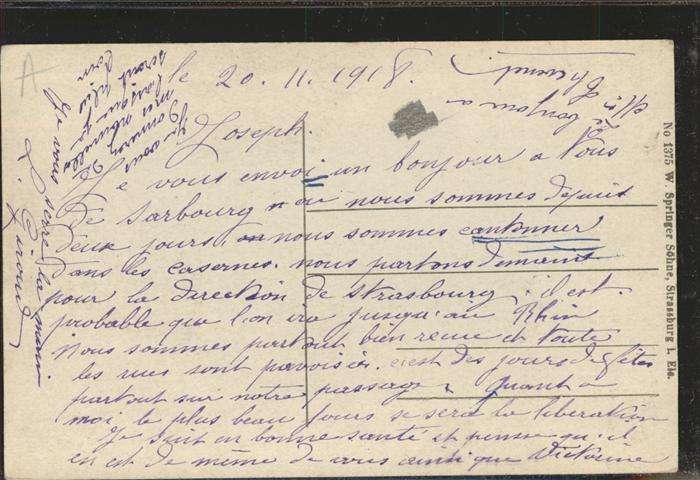 le 20. 11. 1918.
Joseph.
Je vous envoi un bonjour a tous
De Sarbourg ou nous sommes depuis
deux jours. nous sommes cantonner
dans les casernes. nous partons demain
pour la direction de Strasbourg. il est
probable que l'on ira jusqu'au Rhin
Nous sommes partout bien recue et toute
les rues sont pavoisés. c'est des jours de fêtes
partout sur notre passage. Quant a
moi le plus beau jours se sera la liberation
Je suit en bonne santé et pense qu'il
en est de même de vous ainsi que Victorine
Je vous serre la main
Giroud
Je vous
No 1375 W. Springer Söhne, Strassburg i. Els.
A